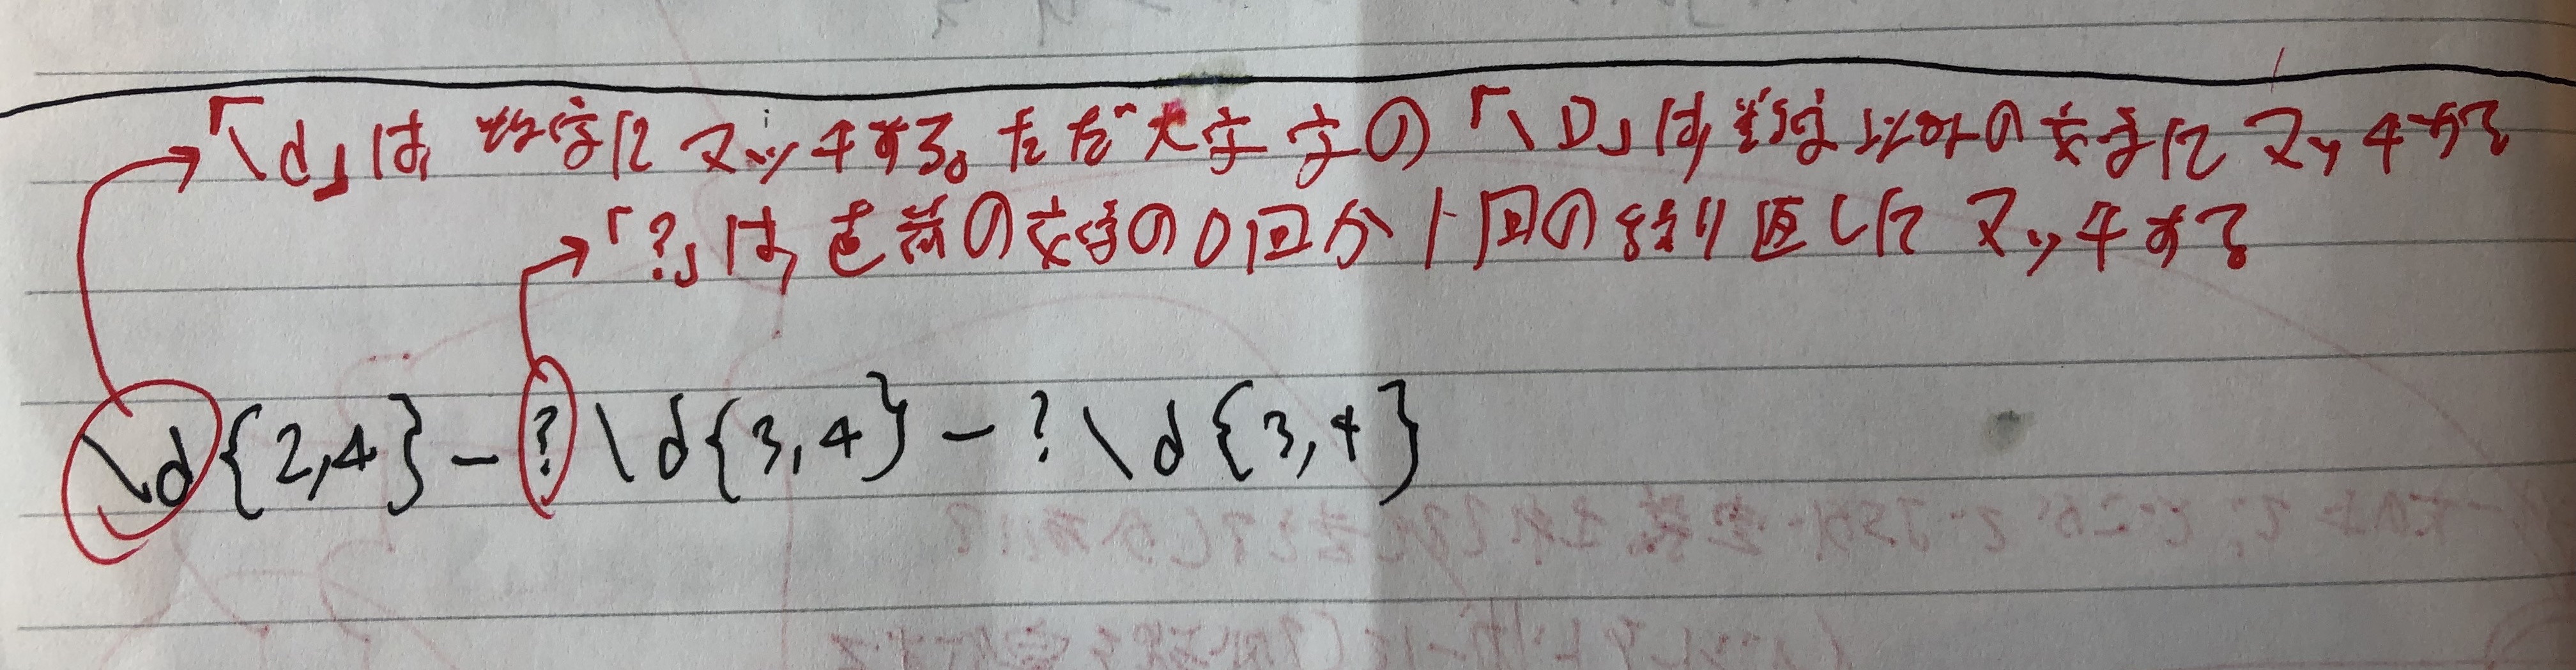 「\d」は数字にマッチする。ただ大文字の「\D」は数字以外の文字にマッチする
「?」は直前の文字の0回か1回の繰り返しにマッチする
\d{2,4}-?\d{3,4}-?\d{3,4}